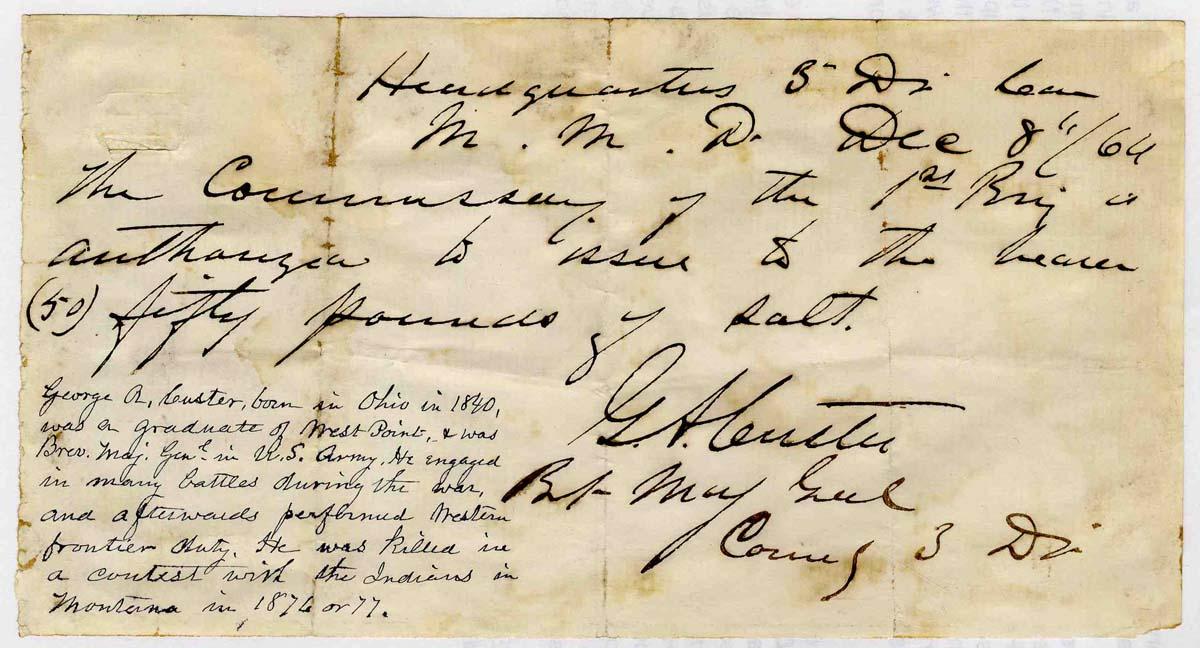 Headquarters 3 Div Cav
M. M. D. Dec 8"/64
The Commissary of the 1st Brig is
authorized to issue to the bearer
(50) fifty pounds of salt.
G. A. Custer
Bvt Maj Genl
Comdg 3 Div
George A, Custer, born in Ohio in 1840,
was a graduate of West Point, & was
Brev. Maj. Genl. in U.S. Army. He engaged
in many battles during the war,
and afterwards performed Western
frontier duty. He was killed in
a contest with the Indians in
Montana in 1876 or 77.